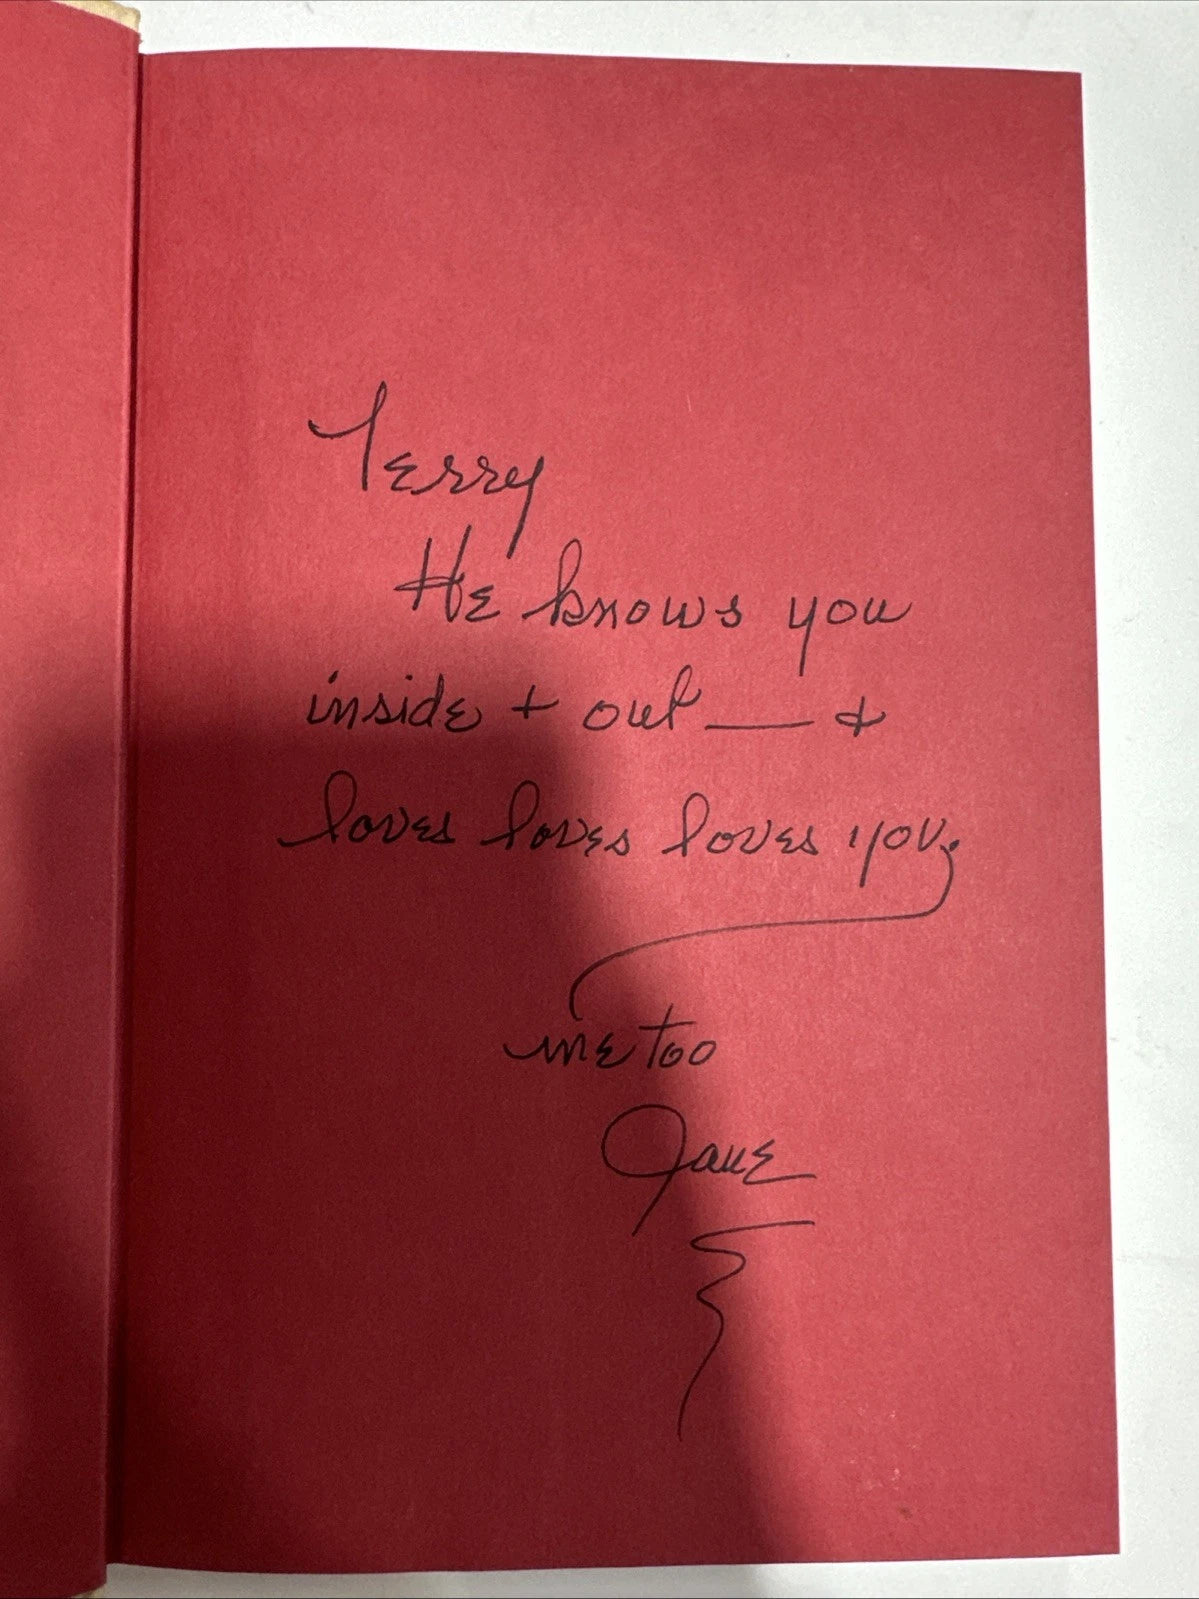 Terry
He knows you
inside + out — &
loves loves loves you.
me too
Jane